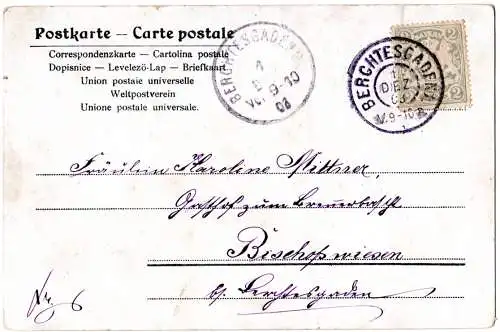 Postkarte — Carte postale
Correspondenzkarte — Cartolina postale
Dopisnice — Levelező-Lap — Briefkaart
Union postale universelle
Weltpostverein
Unione postale universale.
BERCHTESGADEN
1
DEZ
V.9-10
03
BERCHTESGADEN
1
DEZ
03
V.9-10
2
2
Fräulein Karoline Mittner,
Gasthof zum
Bischofswiesen
b/ Berchtesgaden